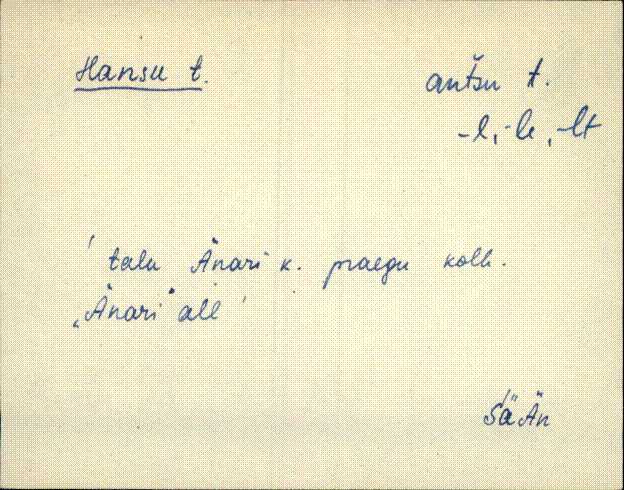 Hansu t.
antšu t.
-l, -le, -lt
' talu Änari k. praegu kolh.
"Änari" all '
SäÄn